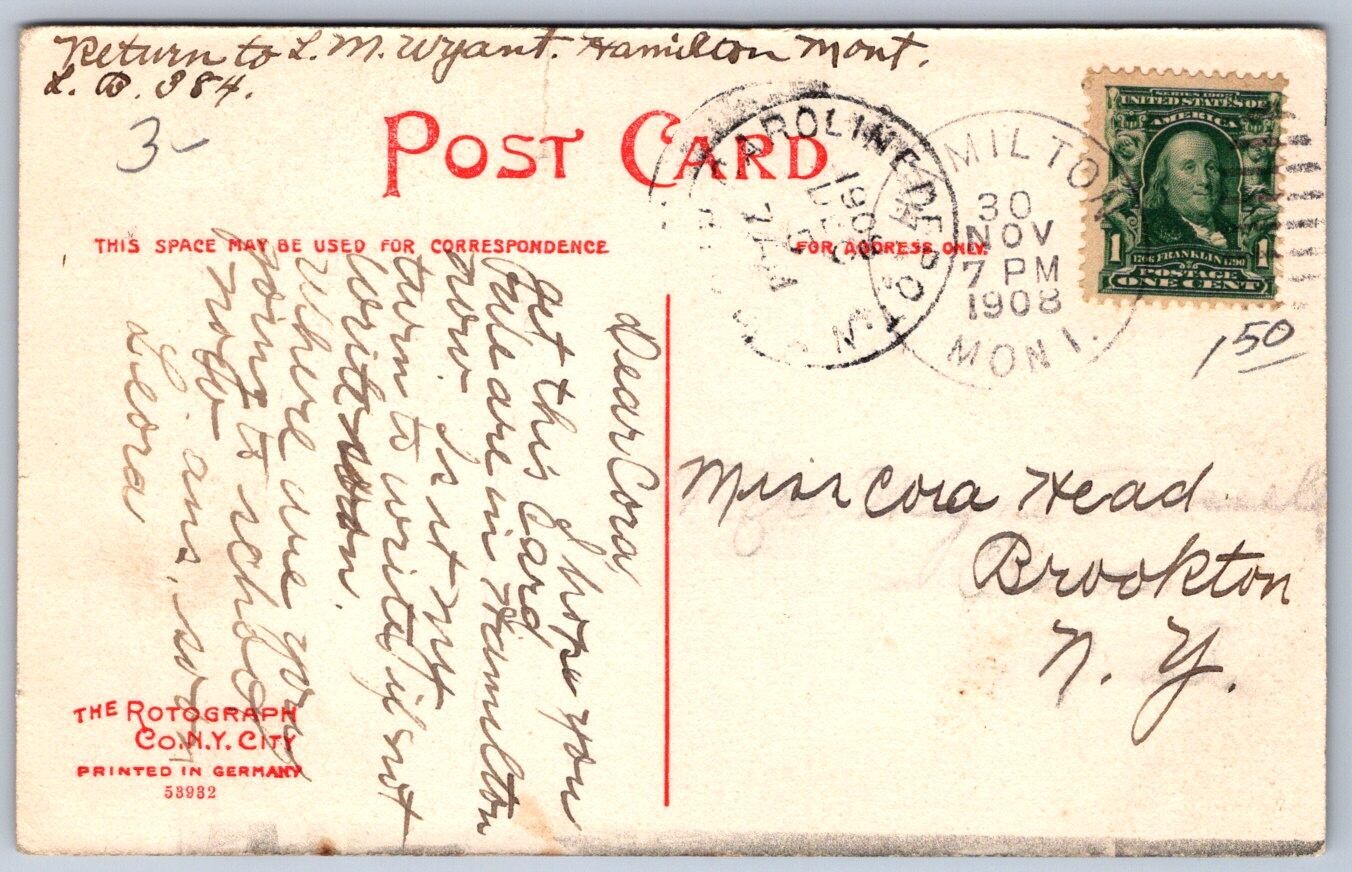 Return to L. M. Wyant. Hamilton Mont.
L. B. 384.
3-
POST CARD
CAROLINE DEPOT N.Y.
1908
DEC
7 AM
HAMILTON
30
NOV
7 PM
1908
MONT.
SERIES 1902
UNITED STATES OF
AMERICA
1706 FRANKLIN 1790
1 POSTAGE 1
ONE CENT
1 50
THIS SPACE MAY BE USED FOR CORRESPONDENCE
FOR ADDRESS ONLY.
Dear Cora,
I hope you
get this Card
Pule are in Hamilton
now. Is it not my
turn to write, if not
write soon.
Where are you
going to school
now ans. soon
Leora
Miss Cora Head
Brookton
N. Y.
THE ROTOGRAPH
CO. N.Y. CITY
PRINTED IN GERMANY
53932